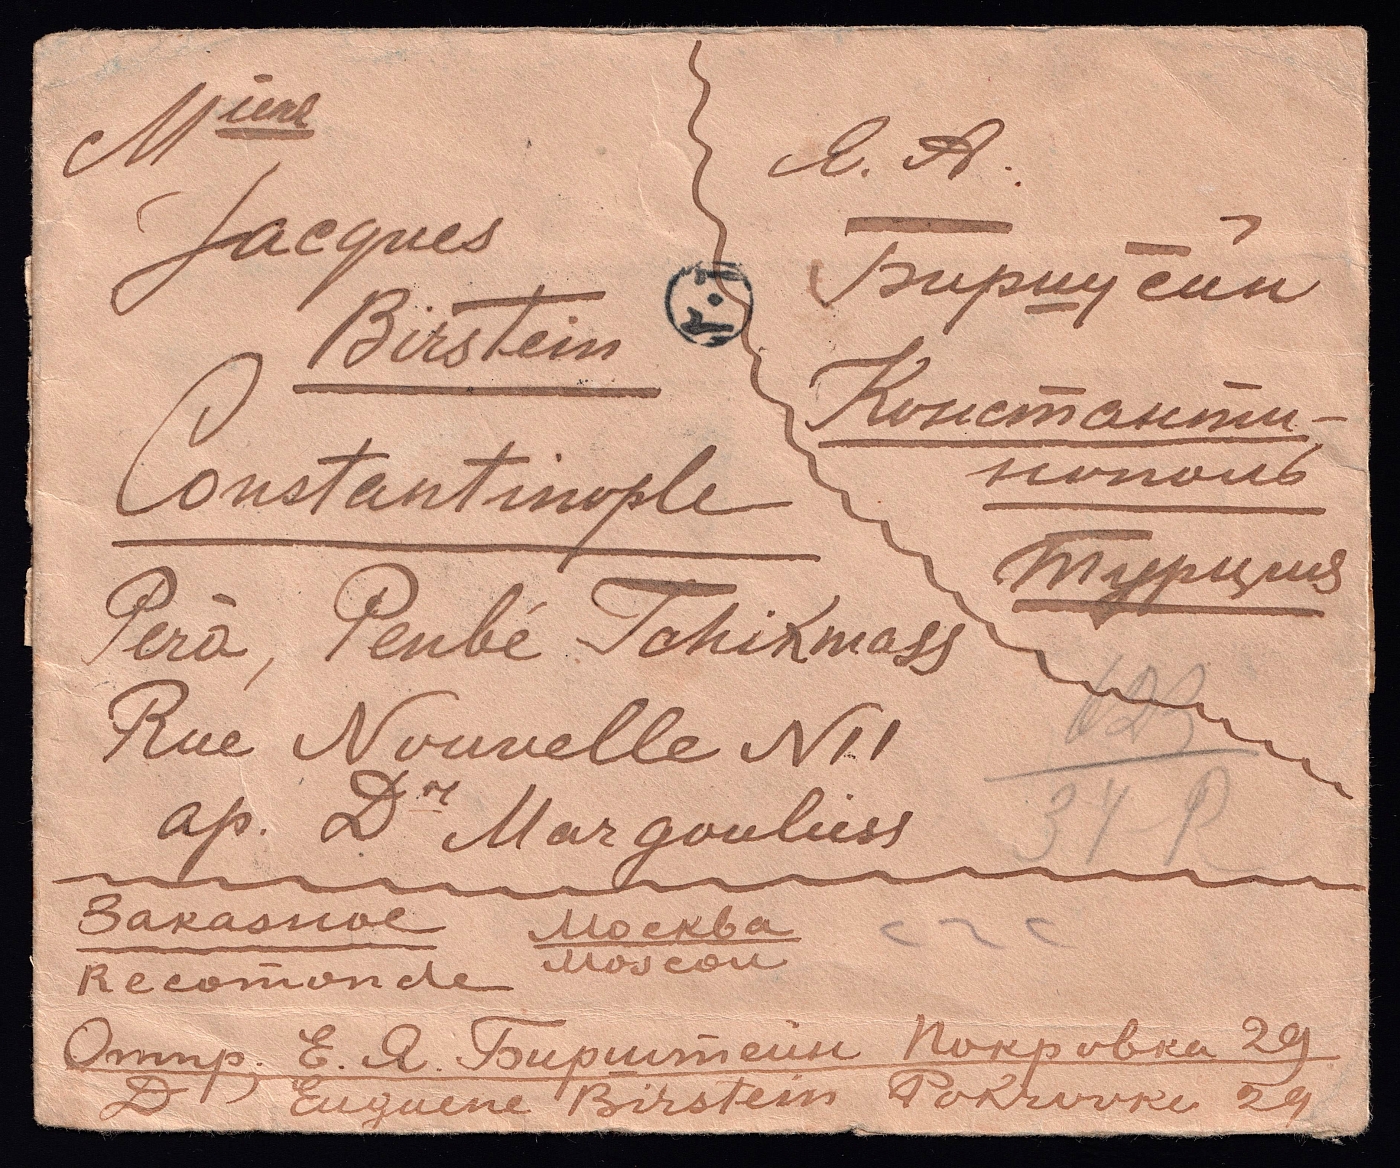 Mme
Jacques
Birstein
Constantinople
Pera, Penbé Tchikmass
Rue Nouvelle N11
ap. Dr Margouliess
Я. А.
Бирштейн
Константи-
нополь
Турция
34 P
Заказное
Recomande
Москва
Moscou
ССС
Отпр. Е. Я. Бирштейн Покровка 29
Dr Euguene Birstein Pokrovke 29